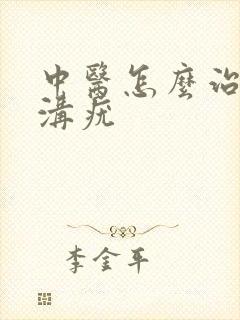 中醫怎麼治
溝疣
李金平